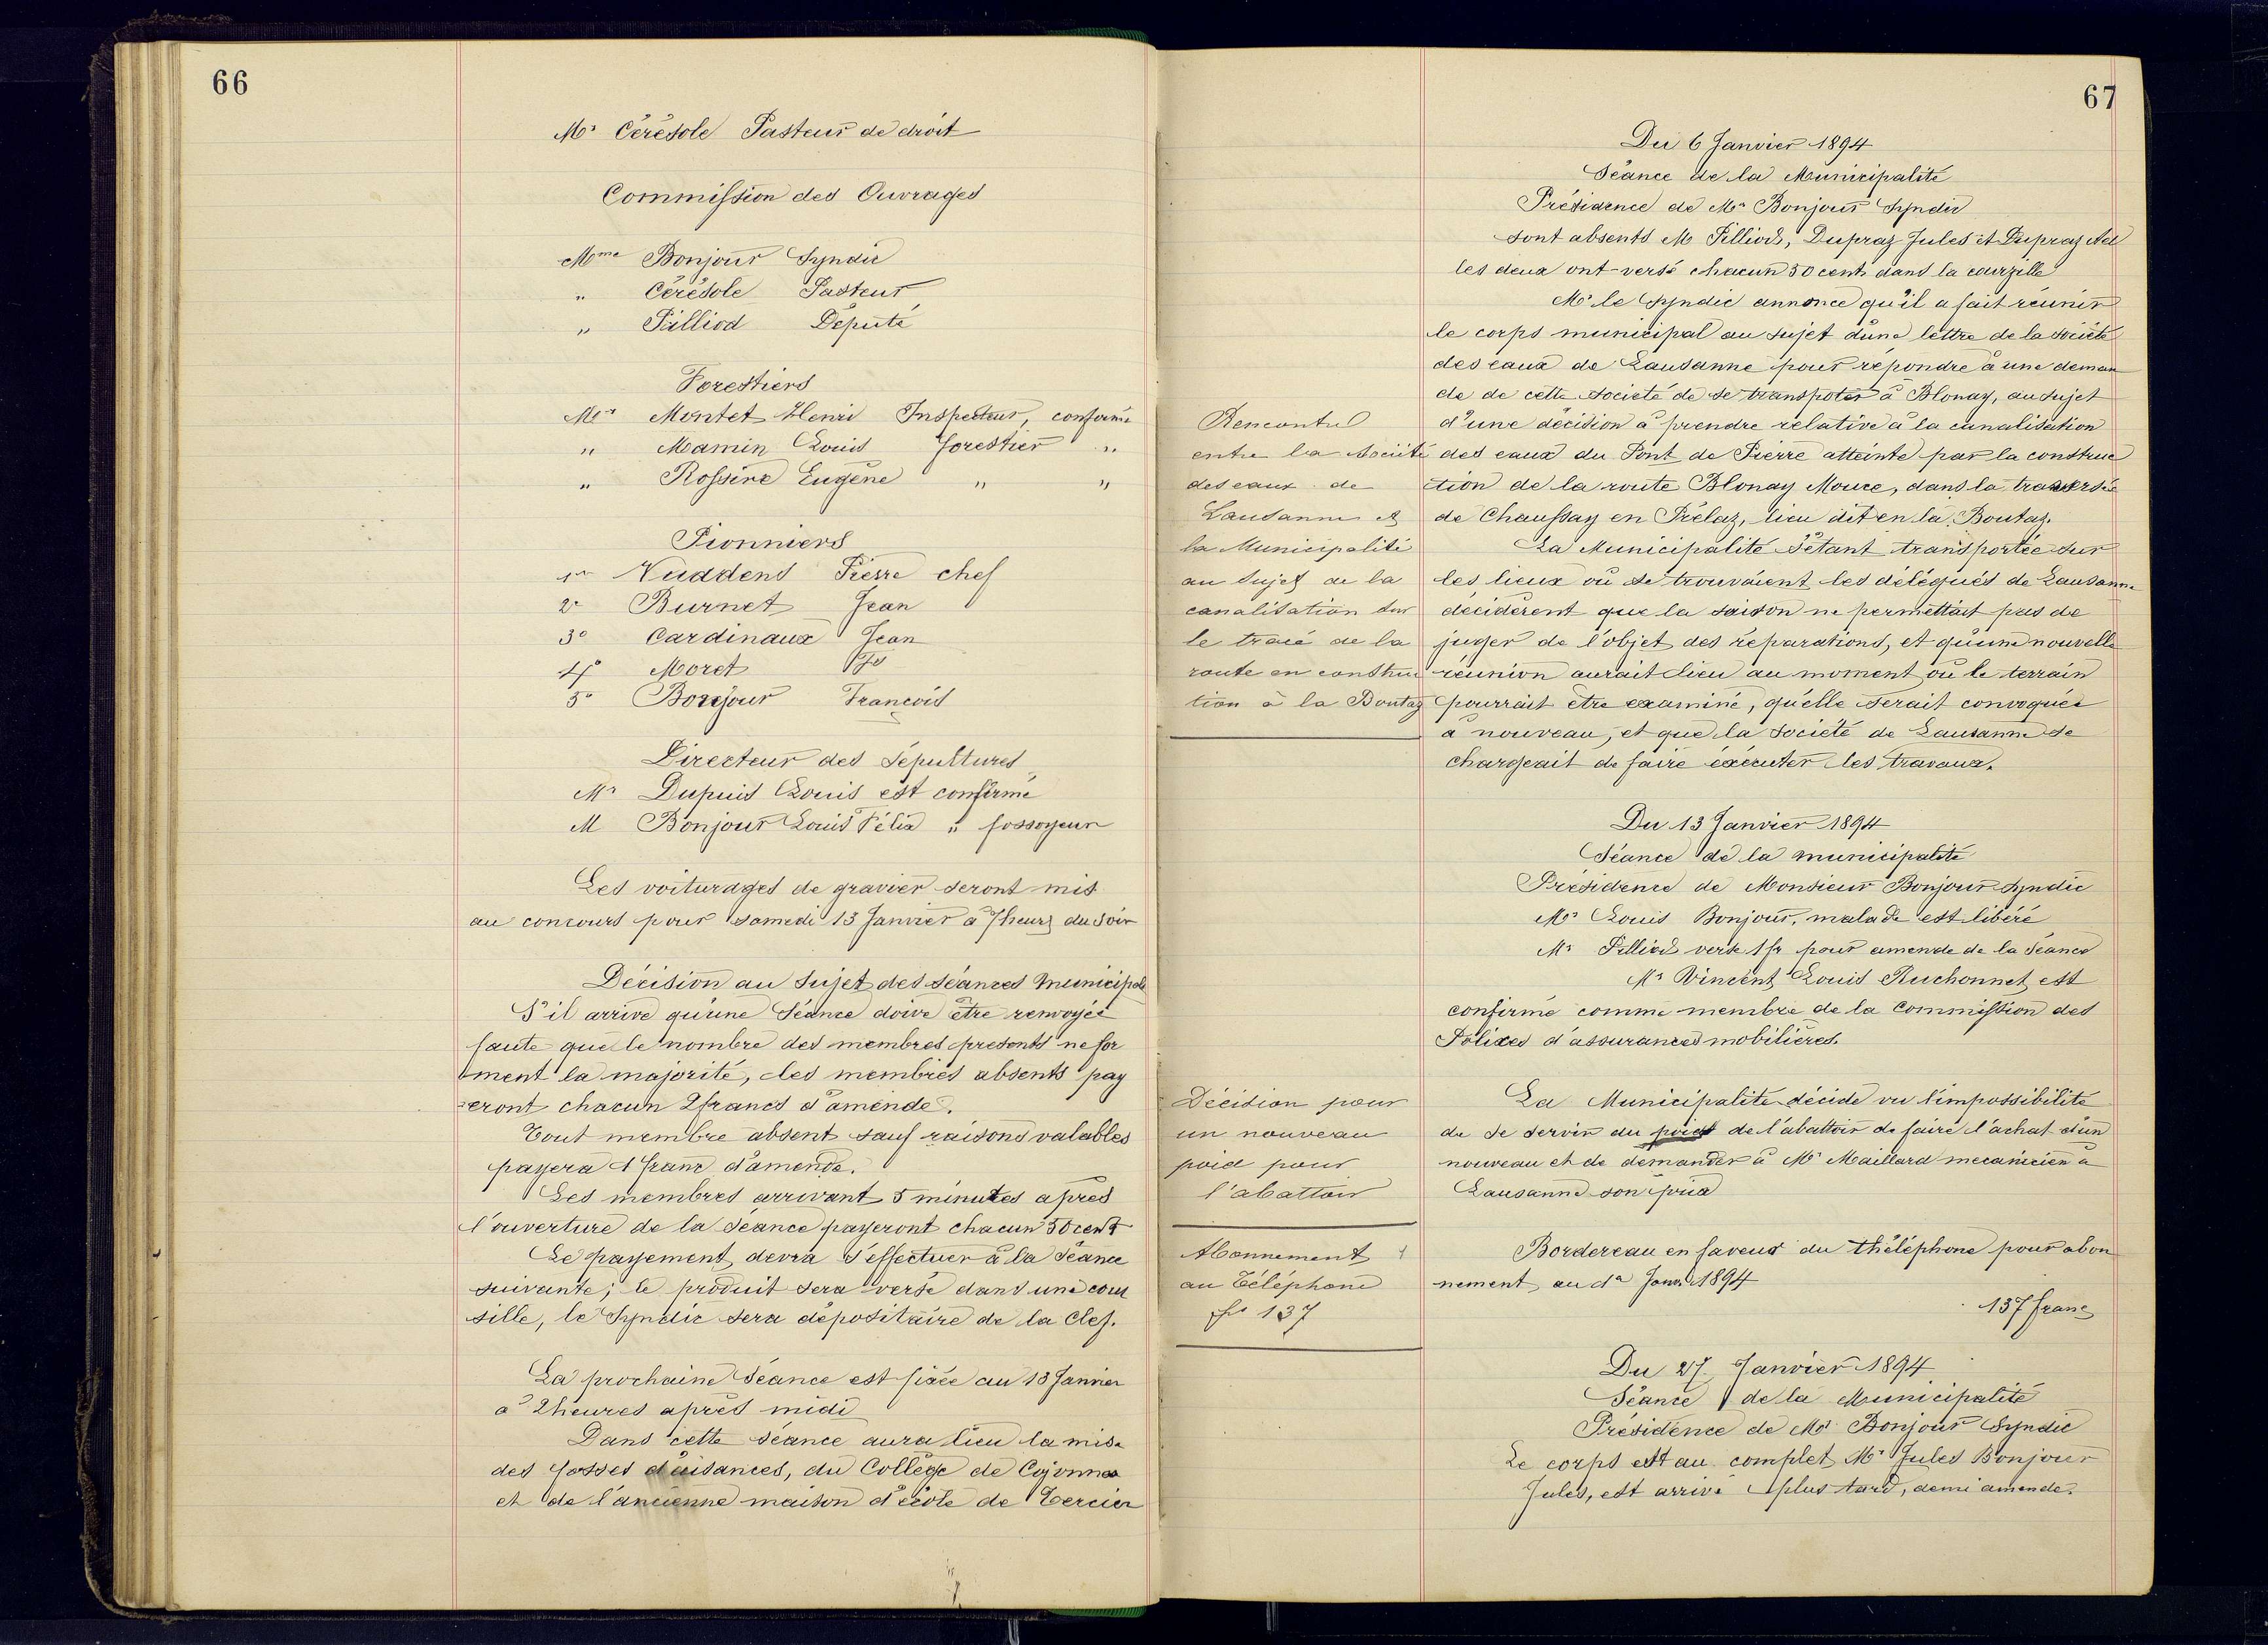 66
Mr Cérésole Pasteur de droit
Commission des Ouvrages
Mme Bonjour Syndic
" Cérésole Pasteur
" Pilliod Député
Forestiers
Mr Montet Henri Inspecteur, confirmé
" Mamin Louis forestier "
" Rossire Eugène " "
Pionniers
1er Naddens Pierre chef
2e Burnet Jean
3o Cardinaux Jean
4o Moret Fs
5o Bonjour Francois
Directeur des Sépultures
Mr Dupuis Louis est confirmé
M Bonjour Louis Félix " fossoyeur
Les voiturages de gravier seront mis
au concours pour samedi 13 Janvier à 7 heures du soir
Décision au sujet des séances Municipale
S'il arrive qu'une Séance doive être renvoyée
faute que le nombre des membres presents ne for
ment la majorité, les membres absents pay
eront chacun 2 francs d'amende.
Tout membre absent sauf raisons valables
payera 1 franc d'amende.
Les membres arrivant 5 minutes après
l'ouverture de la Séance payeront chacun 50 cent
Le payement devra s'effectuer à la Séance
suivante; le produit sera versé dans une cour
sille, le Syndic sera dépositaire de la Clef.
La prochaine Séance est fixée au 13 Janvier
à 2 heures après midi
Dans cette séance aura lieu la mise
des fosses d'aisances, du Collège de Cojonnex
et de l'ancienne maison d'école de Tercier
67
Du 6 Janvier 1894
Séance de la Municipalité
Présidence de Mr Bonjour Syndic
sont absents M Pilliod, Dupraz Jules et Dupraz Ad
les deux ont versé chacun 50 cent dans la courzille
Mr le Syndic annonce qu'il a fait réunir
le corps municipal au sujet d'une lettre de la société
des eaux de Lausanne pour répondre à une deman
de de cette societé de se transpoter à Blonay, au sujet
d'une décision à prendre relative à la canalisation
des eaux du Pont de Pierre atteinte par la construc
ction de la route Blonay Mouce, dans la traversée
de Chaussay en Prélaz, lieu dit en la Boutaz.
La Municipalité s'étant transportée sur
les lieux où se trouvaient les délégués de Lausanne
décidèrent que la saison ne permettait pas de
juger de l'objet des réparations, et qu'une nouvelle
réunion aurait lieu au moment où le terrain
pourrait être examiné, qu'elle serait convoquée
à nouveau, et que la société de Lausanne se
chargeait de faire éxécuter les travaux.
Rencontre
entre la Société
des eaux de
Lausanne et
la Municipalité
au sujet de la
canalisation sur
le tracé de la
route en construc
tion à la Boutaz
Du 13 Janvier 1894
Séance de la municipalité
Présidence de Monsieur Bonjour Syndic
Mr Louis Bonjour, malade est libéré
Mr Pilliod verse 1 fr pour amende de la Séance
Mr Vincent Louis Ruchonnet est
confirmé comme membre de la Commission des
Polices d'assurances mobilières.
Décision pour
un nouveau
poid pour
l'abattoir
La Municipalité décide vu l'impossibilité
de se servir du poids de l'abattoir de faire l'achat d'un
nouveau et de demander à Mr Maillard mecanicien à
Lausanne son prix
Abonnement
au Téléphone
fs 137
Bordereau en faveur du théléphone pour abon
nement au 1er Janv. 1894
137 francs
Du 27 Janvier 1894
Séance de la Municipalité
Présidence de Mr Bonjour Syndic
Le corps est au complet Mr Jules Bonjour
Jules, est arrivé plus tard, demi amende.